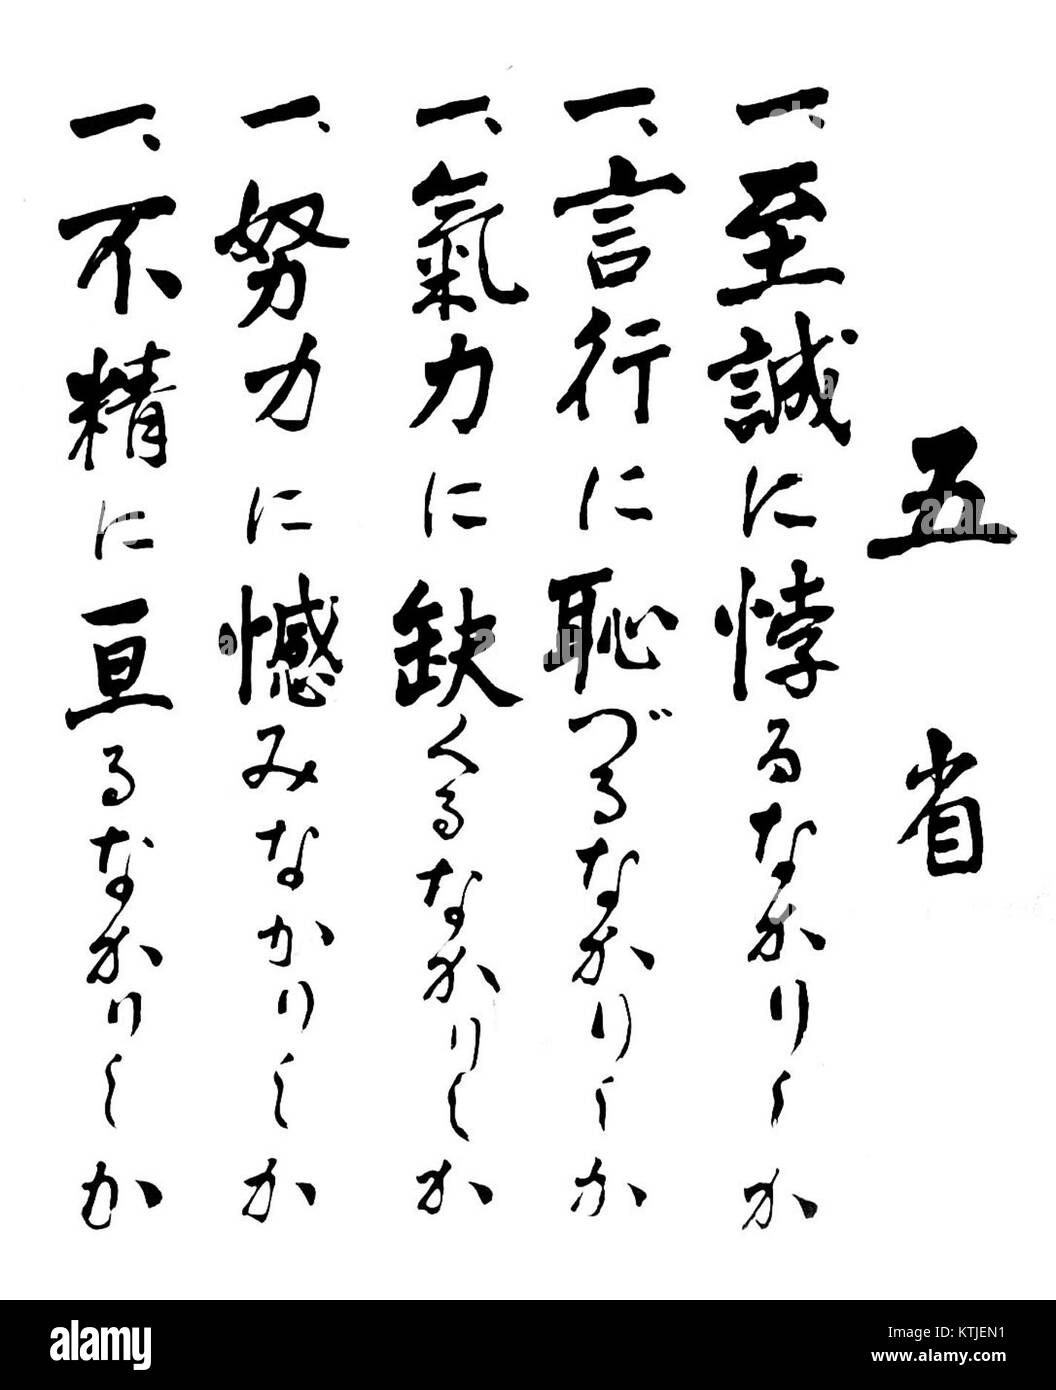 五省
一、至誠に悖るなかりしか
一、言行に恥づるなかりしか
一、氣力に缺くるなかりしか
一、努力に憾みなかりしか
一、不精に亘るなかりしか
alamy
Image ID: KTJEN1
www.alamy.com